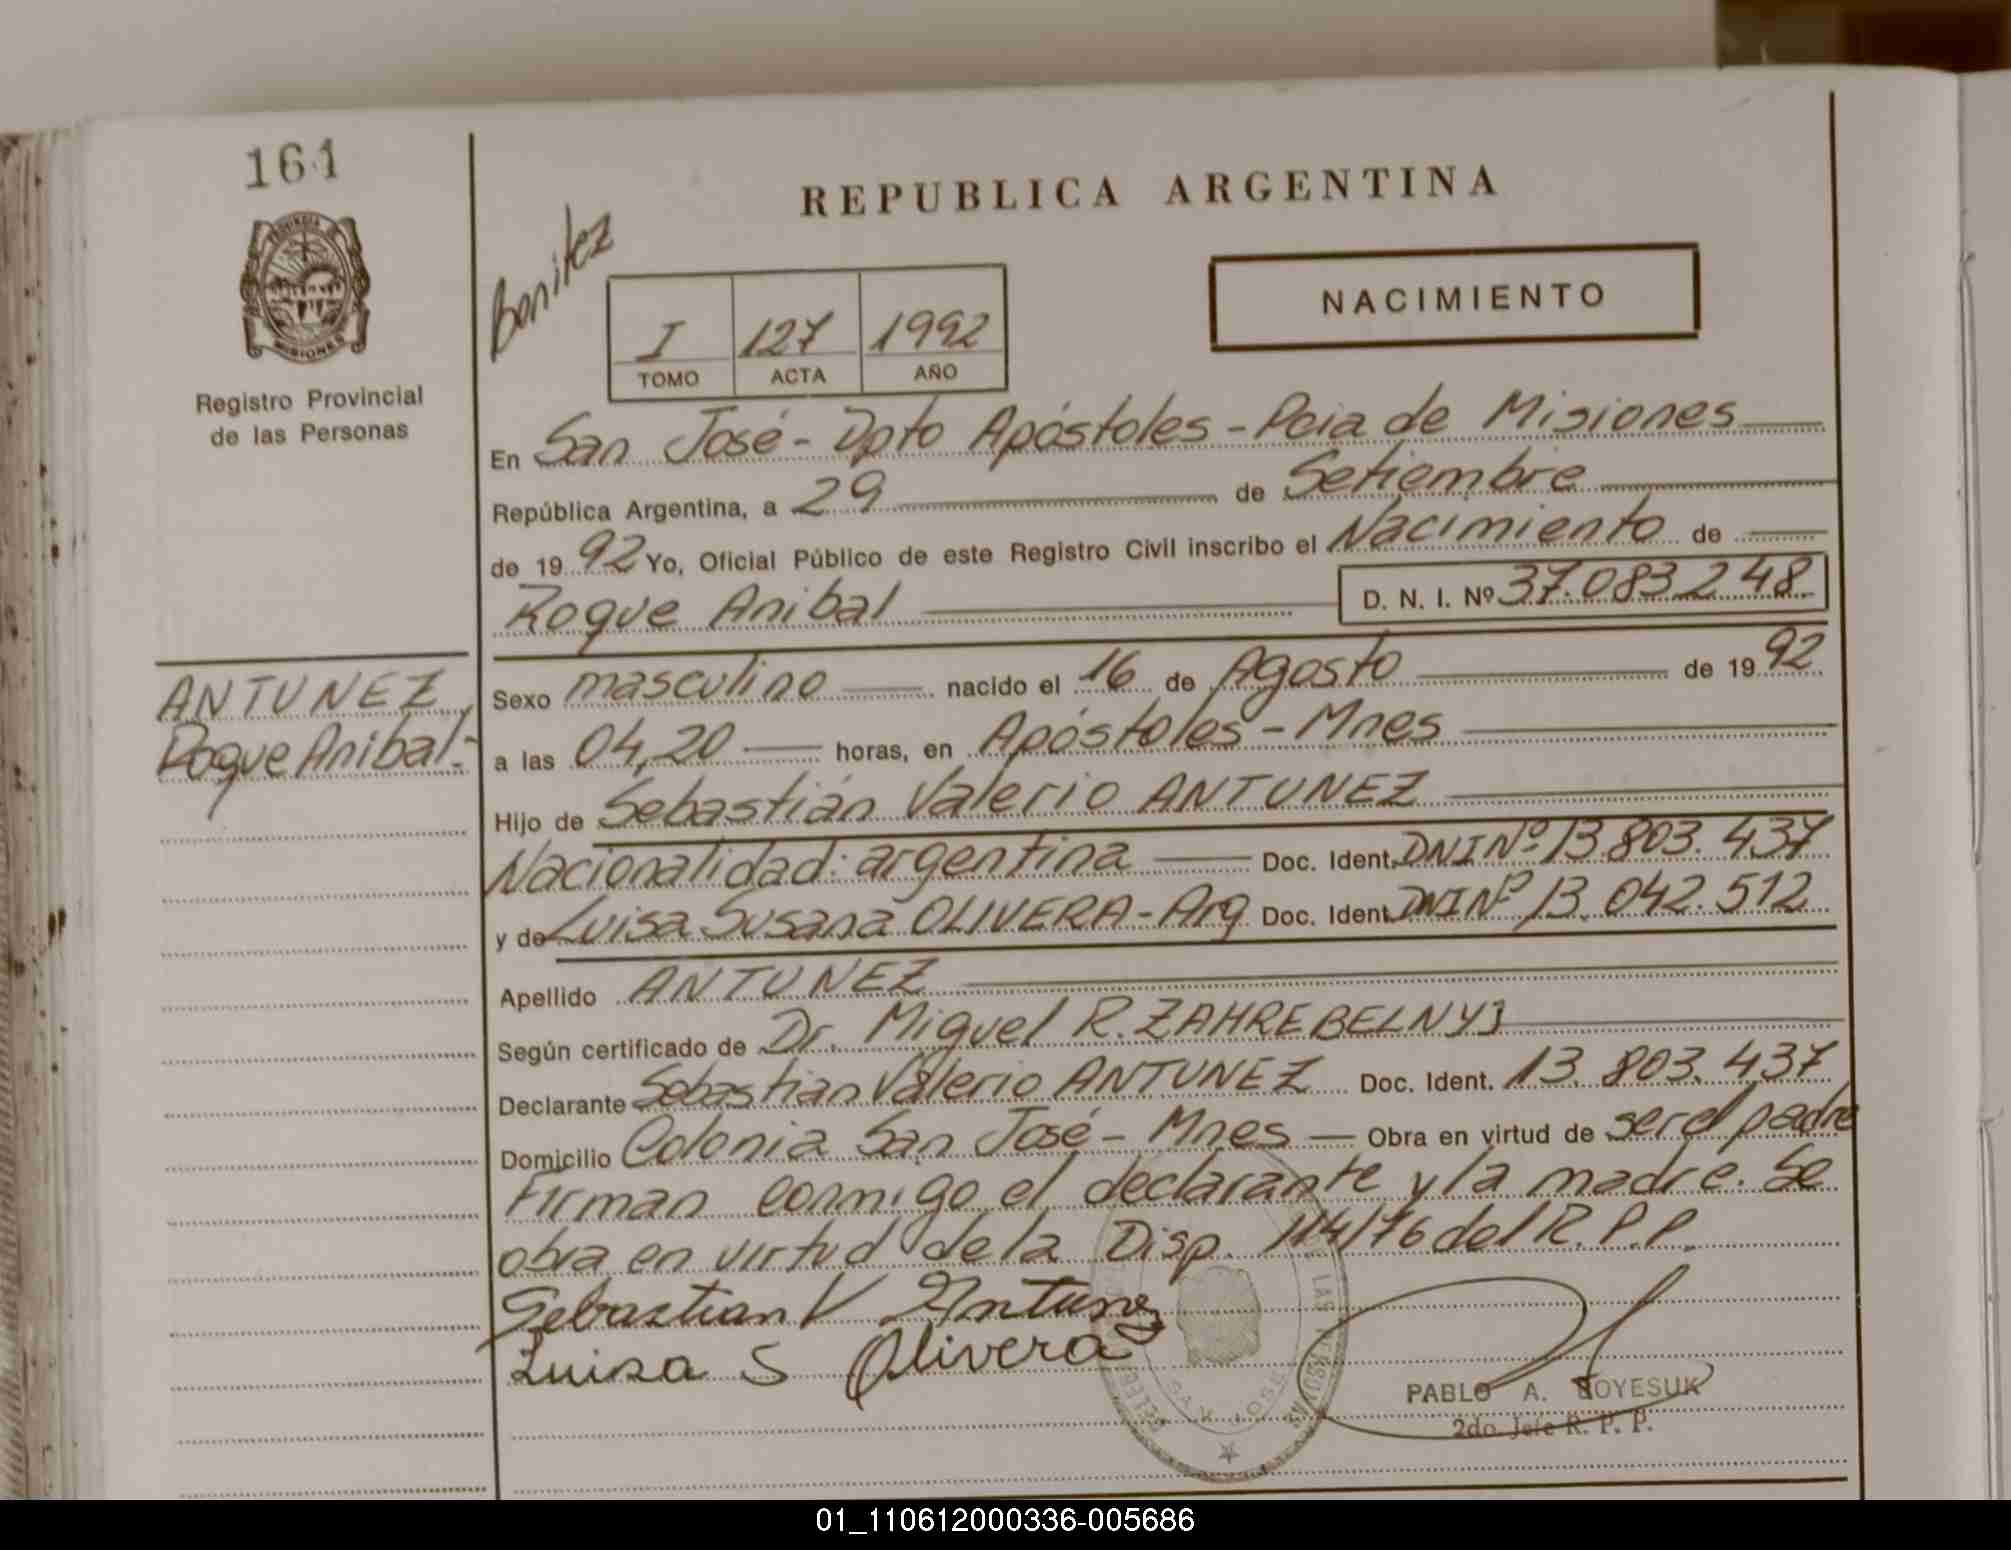 164
REPUBLICA ARGENTINA
PROVINCIA
MISIONES
Registro Provincial
de las Personas
Benitez
I 127 1992
TOMO ACTA AÑO
NACIMIENTO
En San José - Dpto Apóstoles - Pcia de Misiones
República Argentina, a 29 de Setiembre
de 19 92 Yo, Oficial Público de este Registro Civil inscribo el Nacimiento de
Roque Anibal D. N. I. Nº 37.083.248
ANTUNEZ
Roque Anibal.-
Sexo masculino nacido el 16 de Agosto de 19 92
a las 04,20 horas, en Apóstoles - Mnes
Hijo de Sebastián Valerio ANTUNEZ
Nacionalidad: argentina Doc. Ident. DNI Nº 13.803.437
y de Luisa Susana OLIVERA - Arg Doc. Ident. DNI Nº 13.042.512
Apellido ANTUNEZ
Según certificado de Dr. Miguel R. ZAHREBELNYJ
Declarante Sebastian Valerio ANTUNEZ Doc. Ident. 13.803.437
Domicilio Colonia San José - Mnes - Obra en virtud de ser el padre
Firman conmigo el declarante y la madre. Se
obra en virtud de la Disp. 114/76 del R.P.P.
Sebastian V Antunez
Luisa S Olivera
LAS PERSONAS
SAN JOSE
PABLO A. BOYESUK
2do. Jefe R. P. P.
01_110612000336-005686